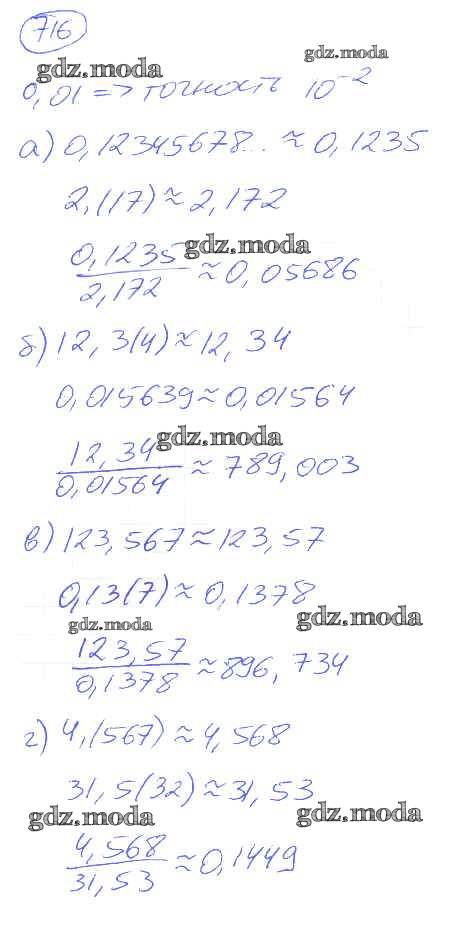 716
gdz.moda
gdz.moda
0,01 => точность 10⁻²
а) 0,12345678... ≈ 0,1235
2,(17) ≈ 2,172
gdz.moda
0,1235
2,172
≈ 0,05686
б) 12,3(4) ≈ 12,34
0,015639 ≈ 0,01564
gdz.moda
12,34
0,01564
≈ 789,003
в) 123,567 ≈ 123,57
0,13(7) ≈ 0,1378
gdz.moda
gdz.moda
123,57
0,1378
≈ 896,734
г) 4,(567) ≈ 4,568
31,5(32) ≈ 31,53
gdz.moda
gdz.moda
4,568
31,53
≈ 0,1449